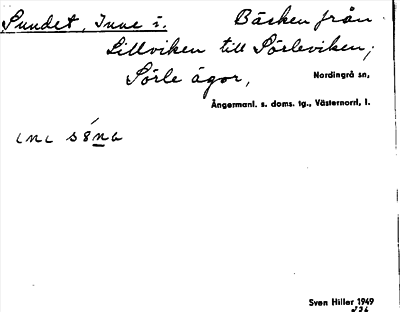 Sundet, Inne i. Bäcken från
Lillviken till Sörleviken;
Sörle ägor, Nordingrå sn,
Ångermanl. s. doms. tg., Västernorrl. l.
Sven Hiller 1949